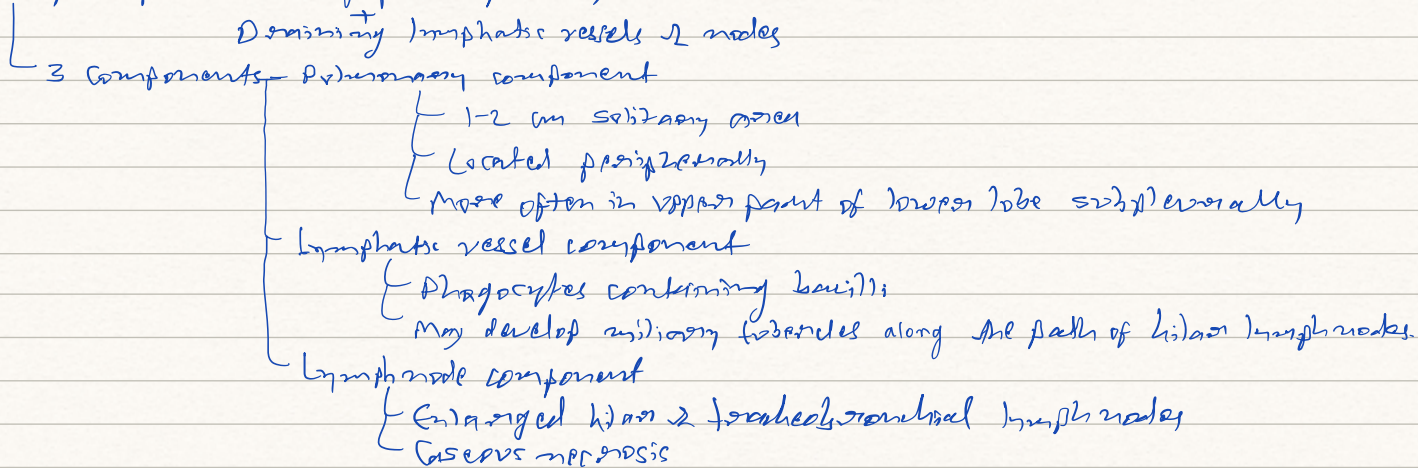 +
Draining lymphatic vessels & nodes
3 Components - Pulmonary component
1-2 cm solitary area
Located peripherally
More often in upper part of lower lobe subpleurally
Lymphatic vessel component
Phagocytes containing bacilli
May develop miliary tubercles along the path of hilar lymphnodes.
Lymphnode component
Enlarged hilar & tracheobronchial lymph nodes
Caseous necrosis